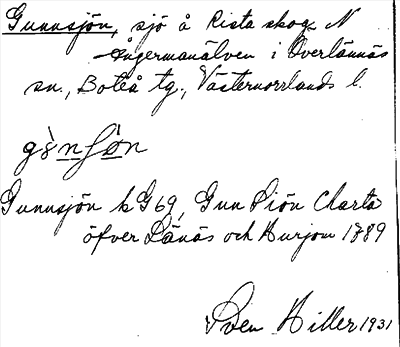 Gunnsjön, sjö å Rista skog N
Ångermanälven i Överlännäs
sn., Boteå tg., Västernorrlands l.
gø̀nʃø̀n
Gunnsjön k G69, Gun Siön Charta
öfver Länäs och Hurjom 1789
Sven Hiller 1931